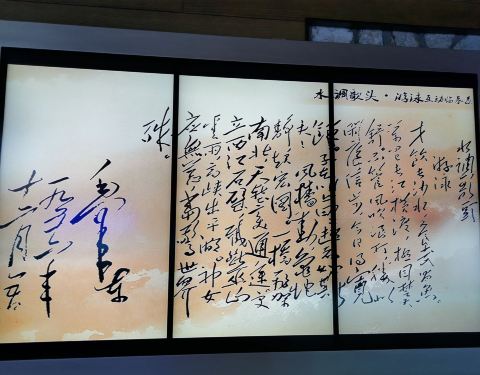 水调歌头·游泳互动临摹
水調歌頭
游泳
才饮长沙水，又食武昌魚。
萬里长江横渡，極目楚
天舒。不管风吹浪打，勝似
闲庭信步，今日得寬
馀。子在川上曰：逝者如斯
夫！风樯动，龟蛇
静，起宏圖。一橋飛架
南北，天堑变通途。更
立西江石壁，截断巫山
雲雨，高峡出平湖。神女
应無恙，當驚世界
殊。
毛泽东
一九五六年
十二月五日